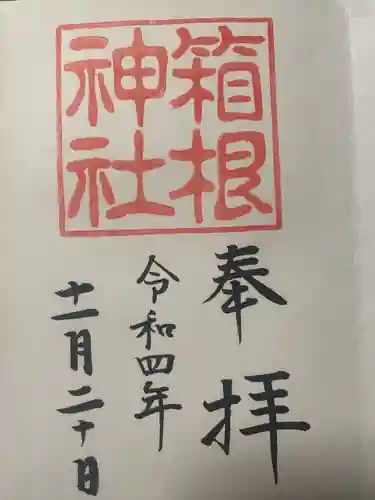 箱根
神社
奉拝
令和四年
十一月二十日